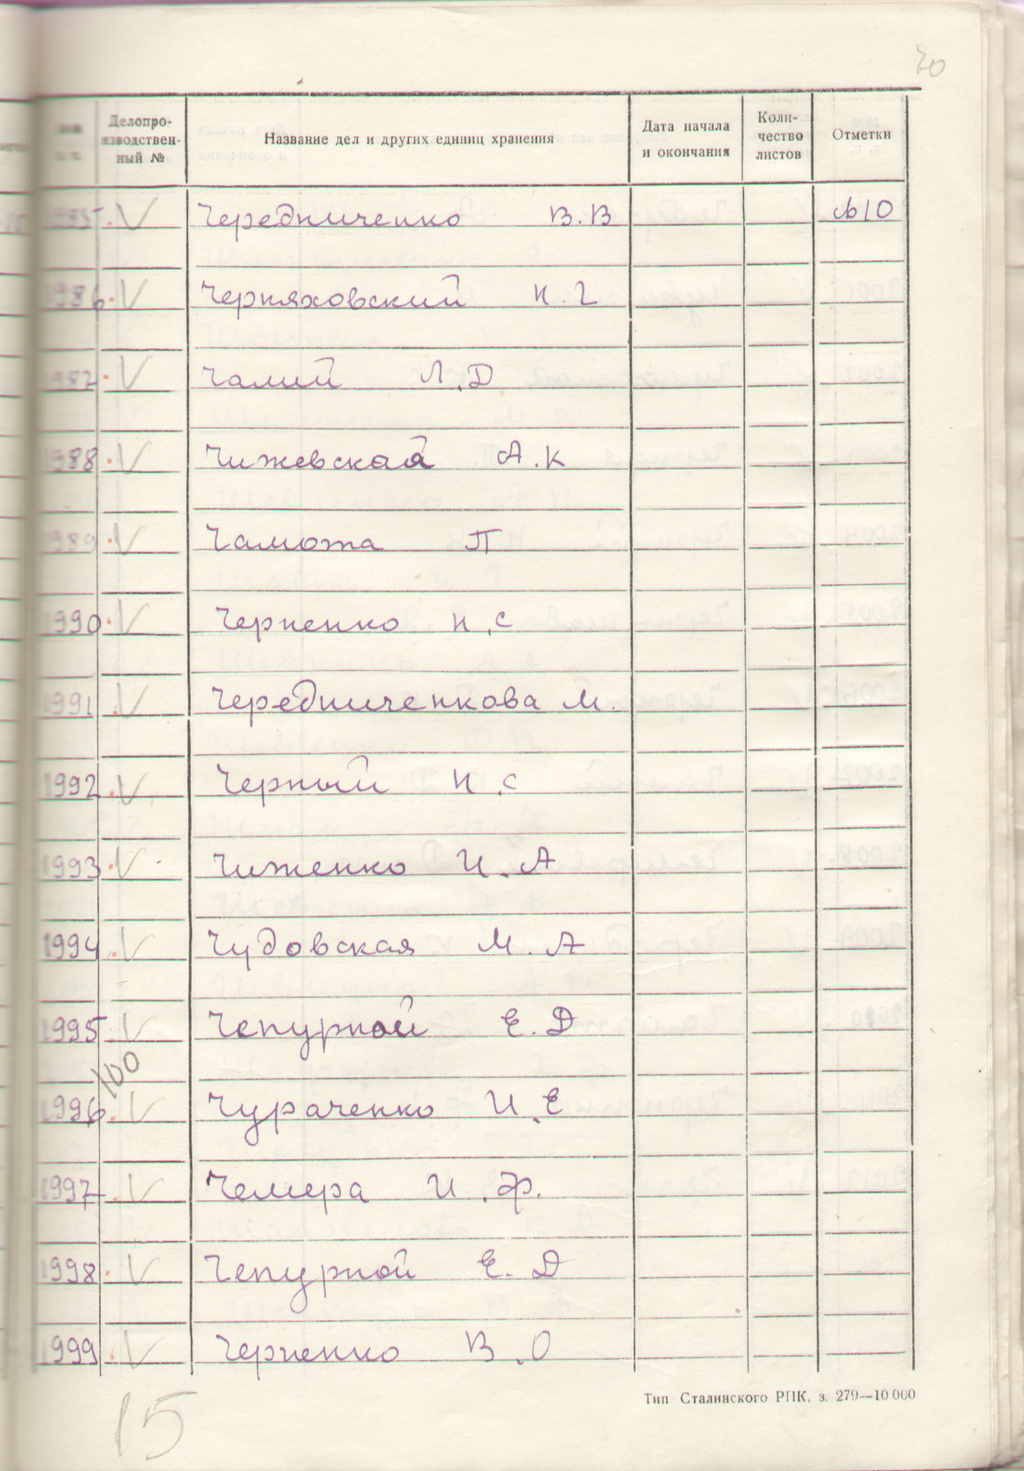 70
Делопро-
изводствен-
ный №
Название дел и других единиц хранения
Дата начала
и окончания
Коли-
чество
листов
Отметки
1985. V Чередниченко В.В №10
1986. V Черняховский И.Г
1987. V Чалий Л.Д
1988. V Чижевская А.К
1989. V Чаможа П
1990. V Черненко И.С
1991. V Чередниченкова М.
1992. V Черный И.С
1993. V Чиженко И.А
1994. V Чудовская М.А
1995. V Чепурной Е.Д
100
1996. V Чураченко И.Е
1997. V Чемера И.Ф.
1998. V Чепурной Е.Д
1999. V Черненко В.О
15
Тип Сталинского РПК, з. 279—10000